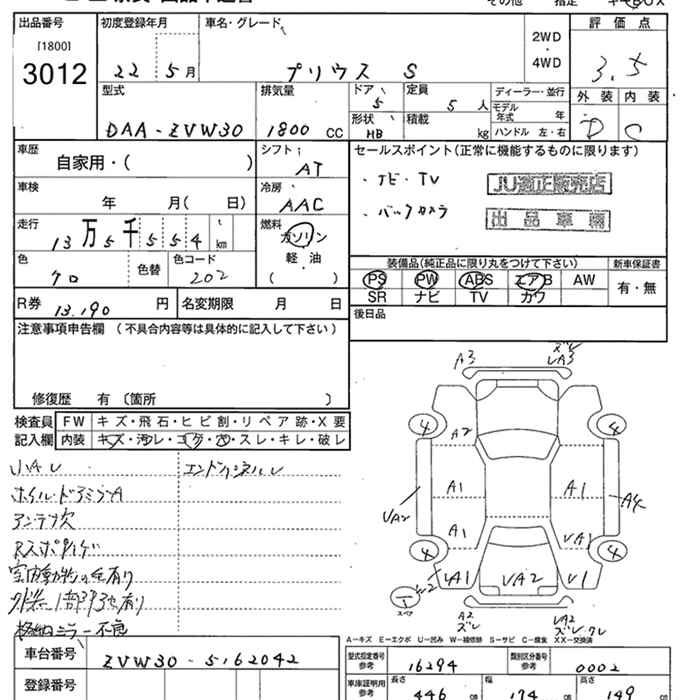 出品番号
[1800]
3012
初度登録年月
22年 5月
車名・グレード
プリウス S
2WD
・
4WD
評価点
3.5
外装 内装
D C
型式
DAA-ZVW30
排気量
1800 CC
ドア
5
形状
HB
定員
5 人
積載
kg
ディーラー・並行
モデル
年式 年
ハンドル 左・右
車歴
自家用・( )
シフト
AT
車検
年 月( 日)
冷房
AAC
走行
13万5千554 km
燃料
ガソリン
軽・油
( )
色
クロ
色替
色コード
202
R券 13,190 円
名変期限 月 日
セールスポイント(正常に機能するものに限ります)
・ナビ・TV
・バックカメラ
JU適正販売店
出品車両
装備品(純正品に限り丸をつけて下さい)
新車保証書
PS PW ABS エアB AW
SR ナビ TV カワ
有・無
後日品
注意事項申告欄 (不具合内容等は具体的に記入して下さい)
修復歴 有 〔箇所 〕
検査員
記入欄
FW キズ・飛石・ヒビ割・リペア跡・X要
内装 キズ・汚レ・コゲ・穴・スレ・キレ・破レ
小AU
ホイル・ドアミラーA
アンテナ欠
室内動物の毛有り
格納ミラー不良
A3
ズレ
UA3
4
4
A2
A1
A1
A4
UA2
A1
UA1
4
4
UA1
UA2
U1
A2
ズレ
UA2
A-キズ E-エクボ U-凹み W-補修跡 S-サビ C-腐食 XX-交換済
車台番号
ZVW30-5162042
登録番号
型式指定番号
参考
16294
類別区分番号
参考
0002
車庫証明用
参考
長さ
446 cm
幅
174 cm
高さ
149 cm